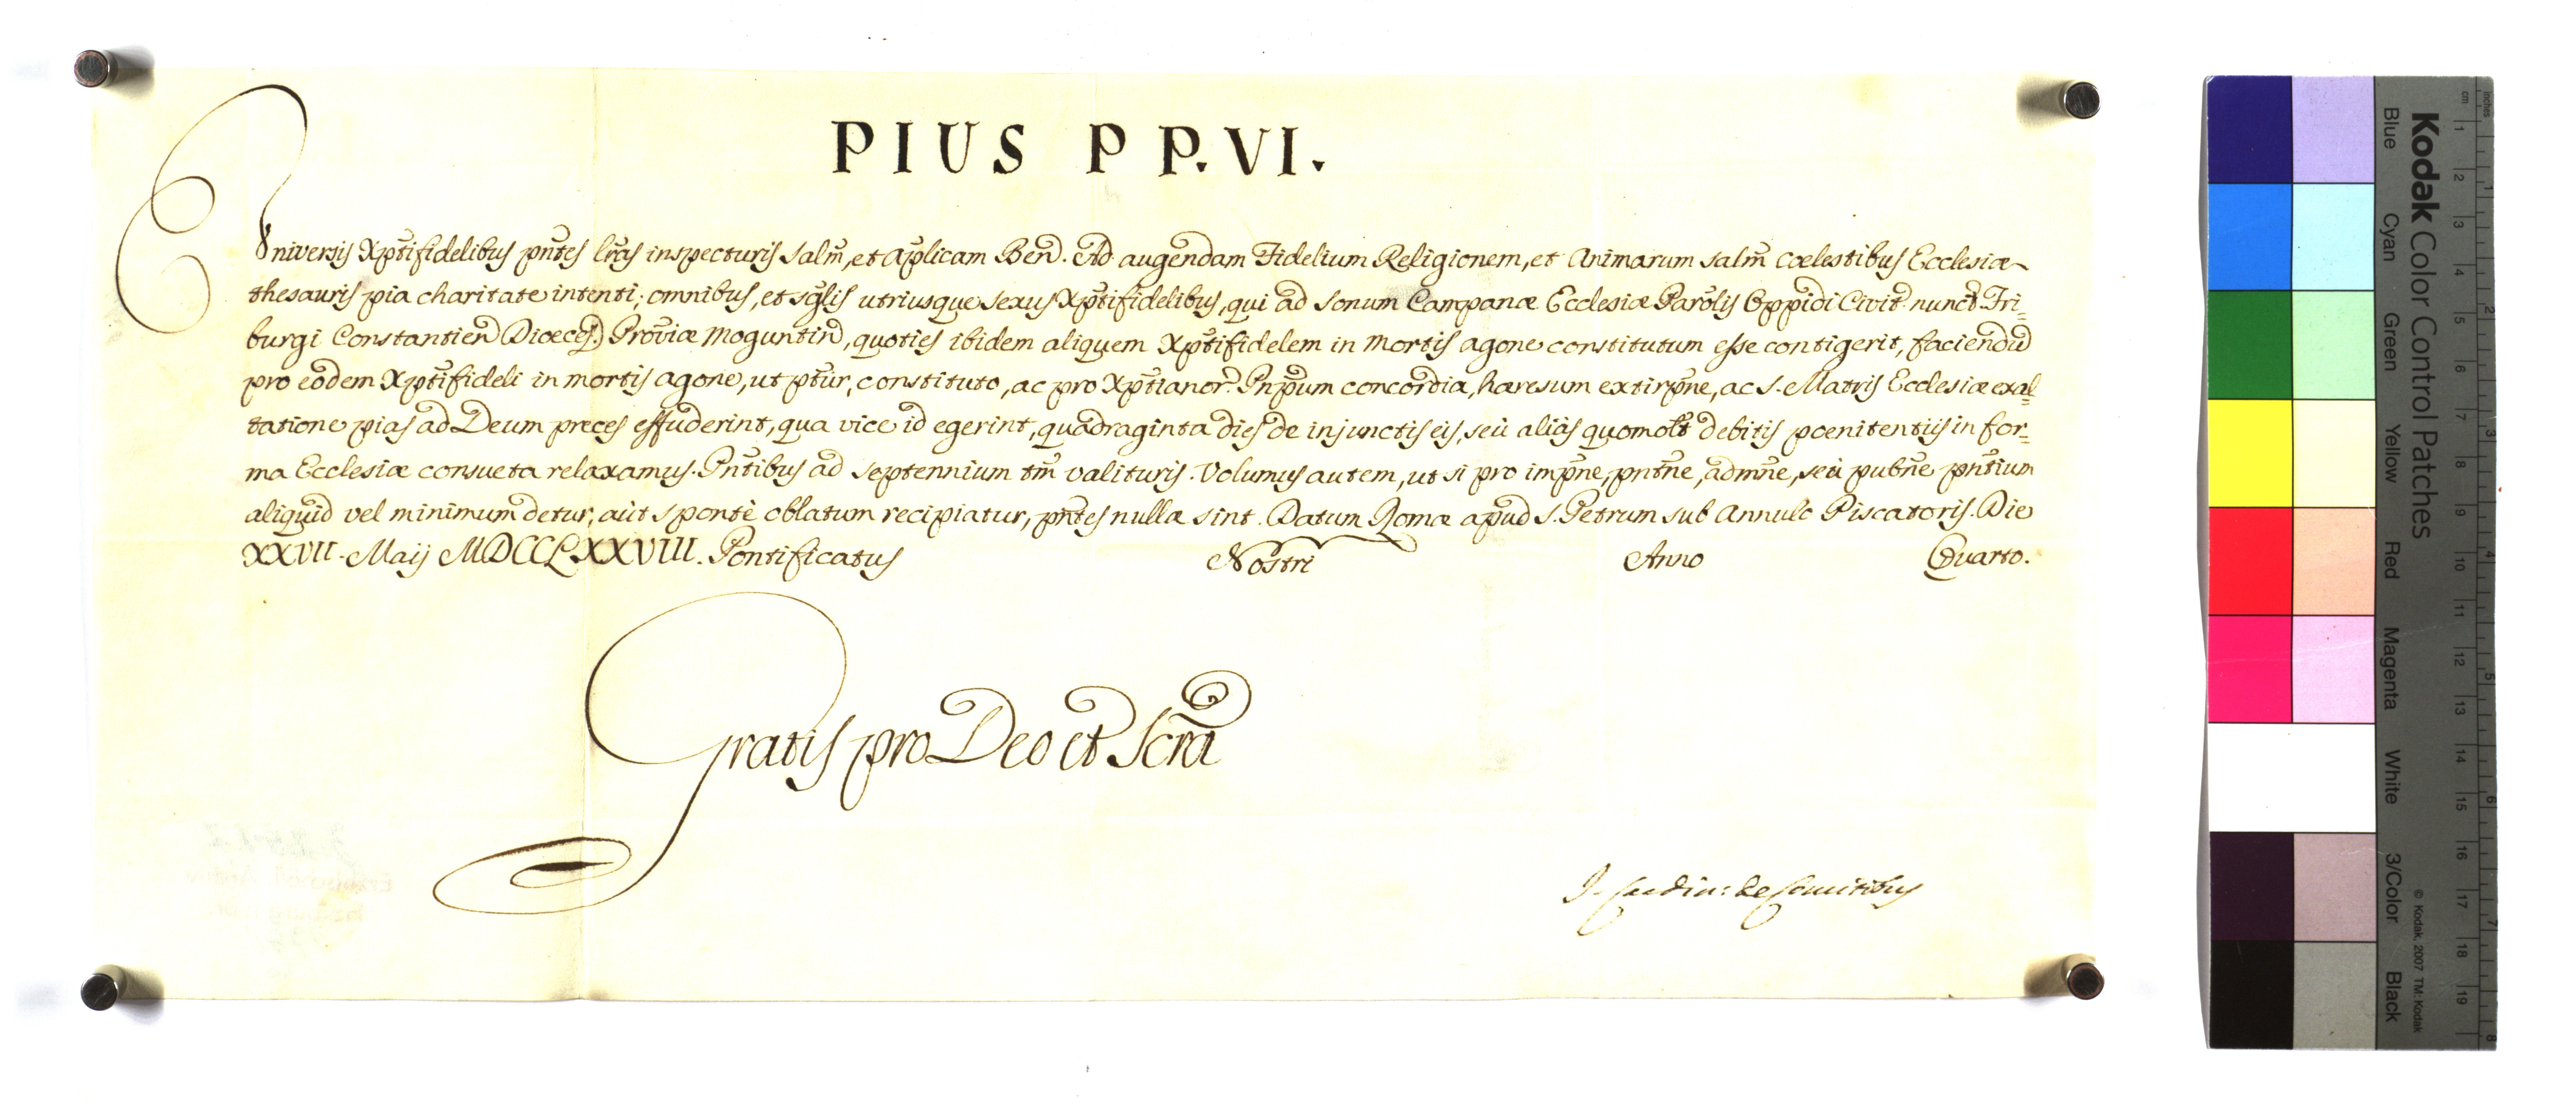 PIUS PP. VI.
Universis Xp̃tifidelibus pñtes lr̃as inspecturis salm̃, et ap̃licam Ben̄. Ad augendam Fidelium Religionem, et Animarum salm̃ cœlestibus Ecclesiæ
thesauris pia charitate intenti, omnibus, et sg̃lis utriusque sexus Xp̃tifidelibus, qui ad sonum Campanæ Ecclesiæ Parõlis Oppidi Civit. nunct. Fri-
burgi Constantien̄ Diœces. Provĩæ Moguntin̄, quoties ibidem aliquem Xp̃tifidelem in mortis agone constitutum esse contigerit, faciendũ
pro eodem Xp̃tifideli in mortis agone, ut p̃tur, constituto, ac pro Xp̃tianor. Pnp̃um concordia, hæresum extirp̃ne, ac S. Matris Ecclesiæ exal-
tatione pias ad Deum preces effuderint, qua vice id egerint, quadraginta dies de injunctis eis, seù aliàs quomolt debitis pœnitentiis in for-
ma Ecclesiæ consueta relaxamus. Pñtibus ad septennium tm̃ valituris. Volumus autem, ut si pro imp̃ne, pñtñe, admñe, seù pubñe pñtium
aliquid vel minimum detur, aùt spontè oblatum recipiatur, pñtes nullæ sint. Datum Romæ apud S. Petrum sub Annulo Piscatoris. Die
XXVII. Maij MDCCLXXVIII. Pontificatus Nostri Anno Quarto.
Gratis pro Deo et Scrã
J. Cardin: de Comitibus
Kodak Color Control Patches
Blue Cyan Green Yellow Red Magenta White 3/Color Black
© Kodak, 2007 TM: Kodak
cm 1 2 3 4 5 6 7 8 9 10 11 12 13 14 15 16 17 18 19
inches 1 2 3 4 5 6 7 8